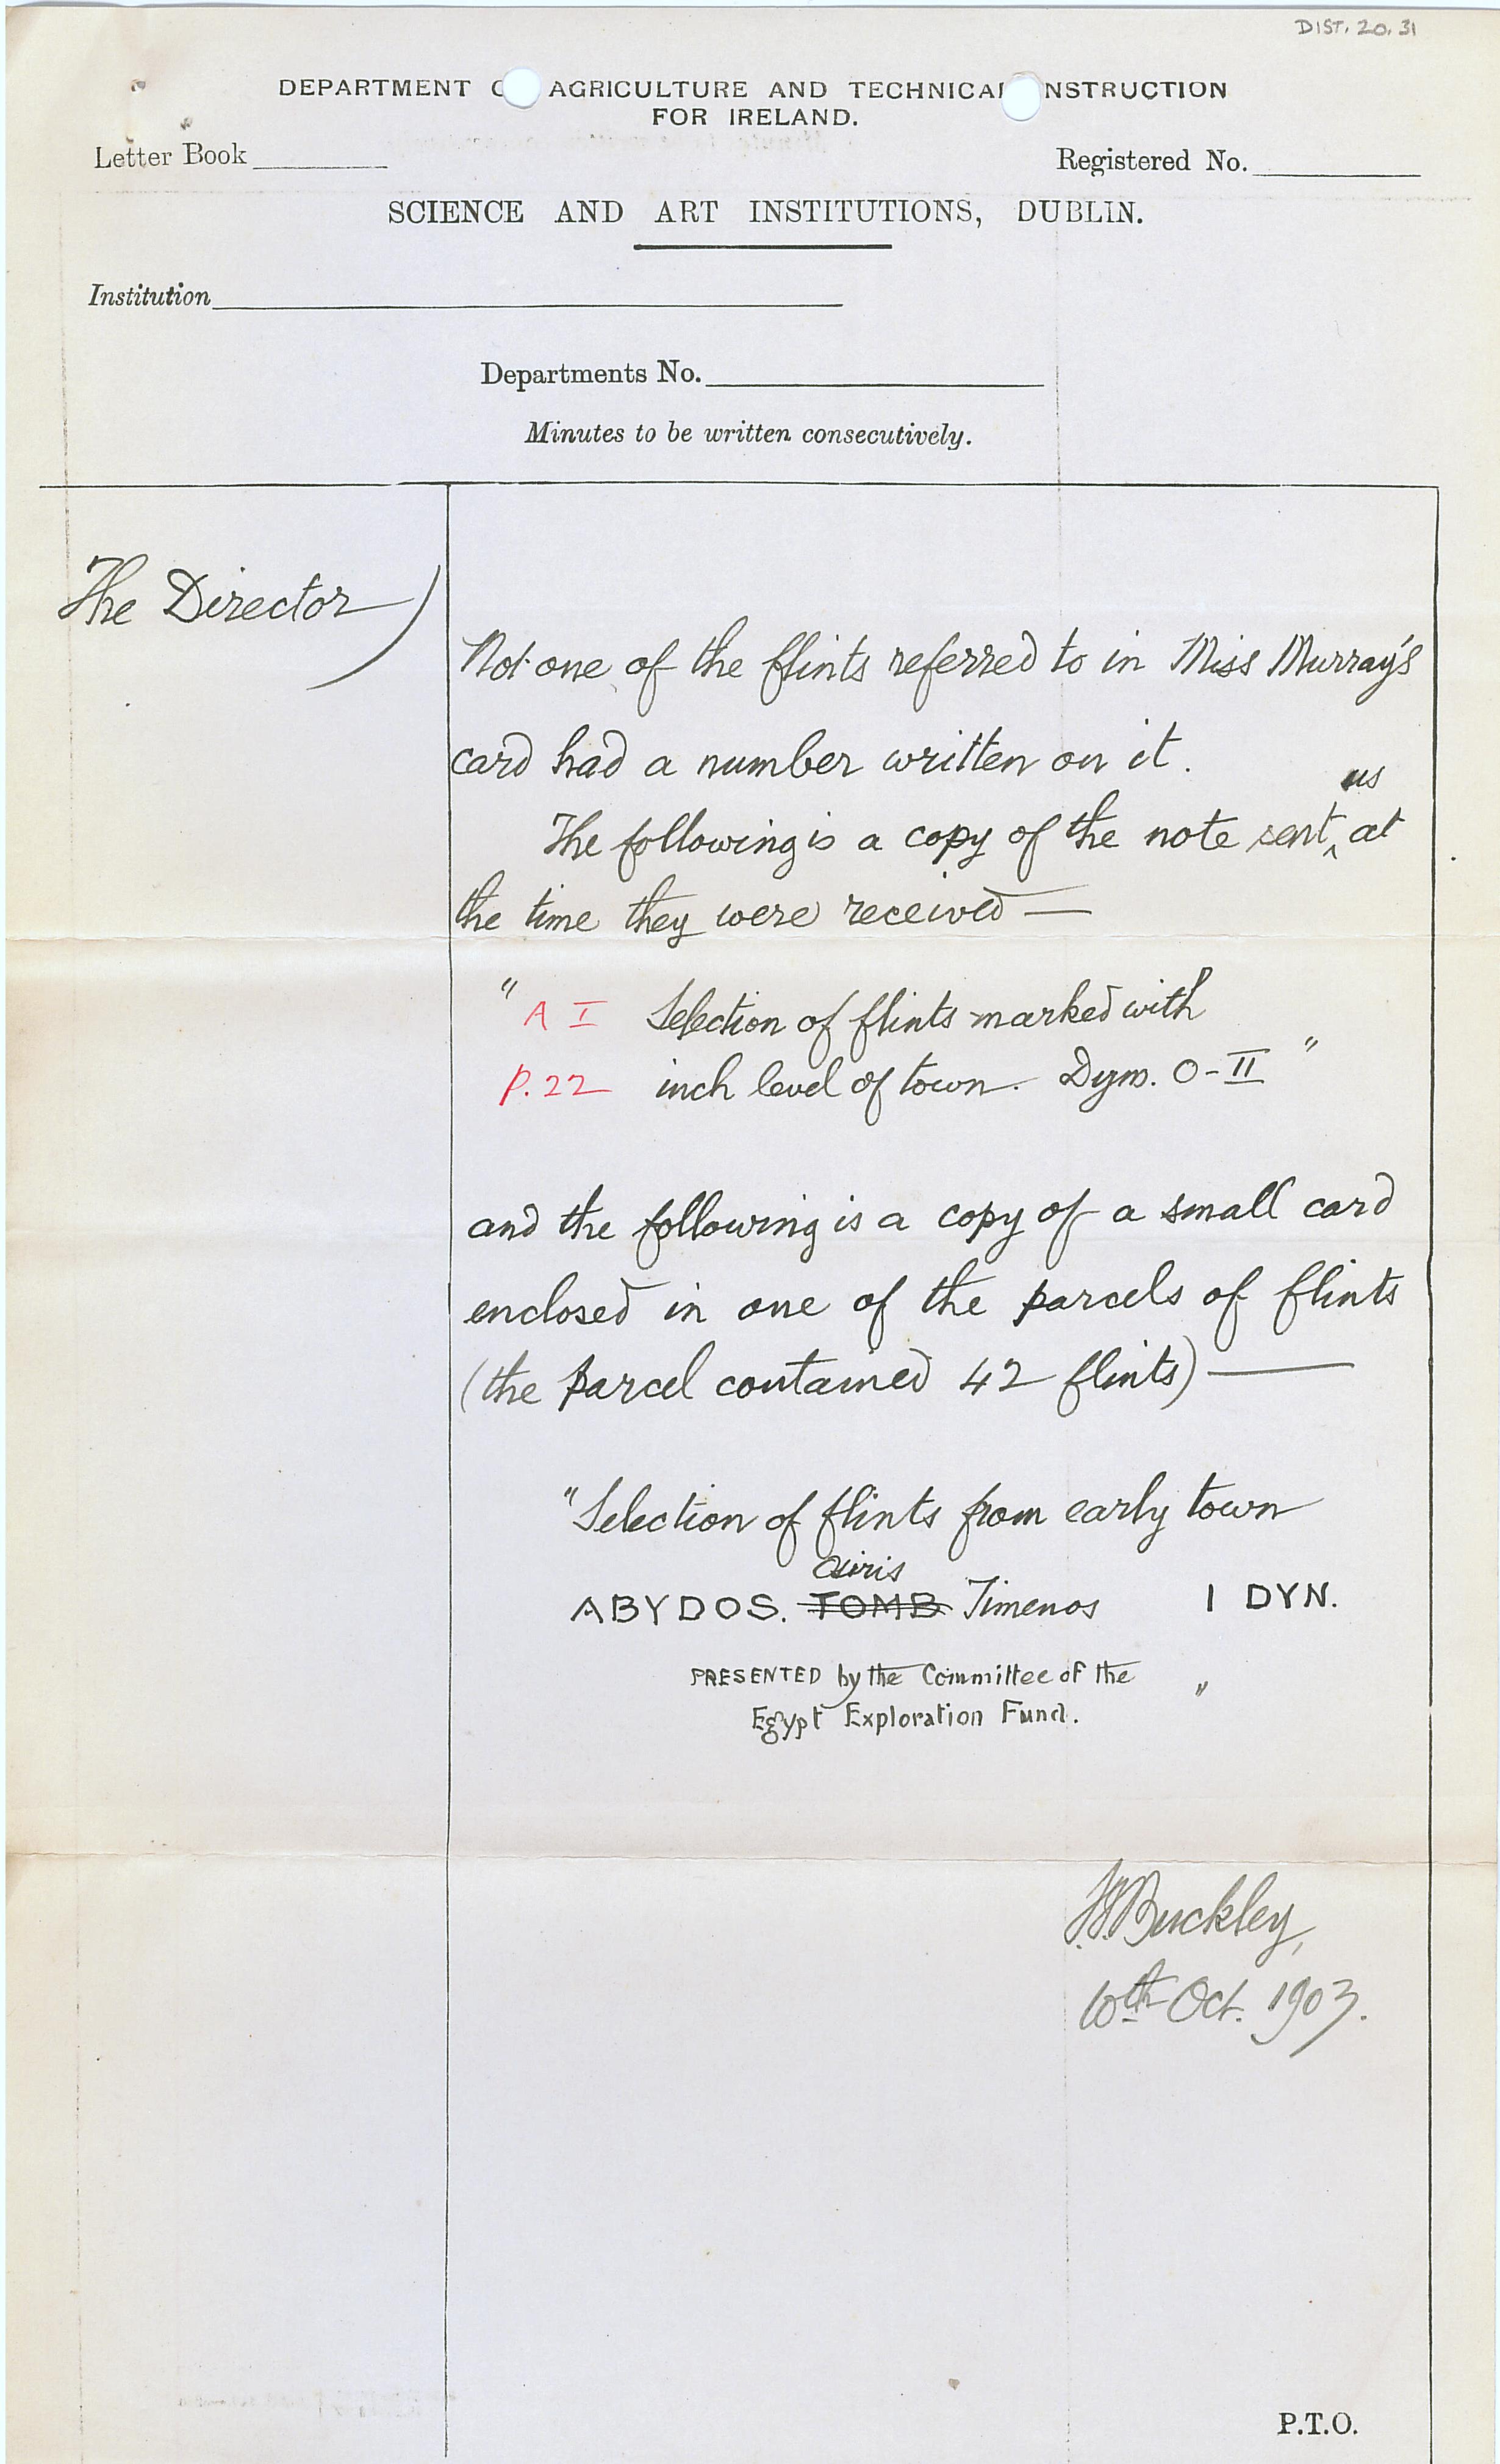 DIST. 20. 31
DEPARTMENT O AGRICULTURE AND TECHNICAL NSTRUCTION
FOR IRELAND.
Letter Book
Registered No.
SCIENCE AND ART INSTITUTIONS, DUBLIN.
Institution
Departments No.
Minutes to be written consecutively.
The Director
Not one of the flints referred to in Miss Murray's
card had a number written on it.
us
The following is a copy of the note sent ‸ at
the time they were received —
" A I Selection of flints marked with
P. 22 inch level of town. Dym. O - II "
and the following is a copy of a small card
enclosed in one of the parcels of flints
(the parcel contained 42 flints) —
"Selection of flints from early town
Osiris
ABYDOS. TOMB Timenos I DYN.
PRESENTED by the Committee of the "
Egypt Exploration Fund.
Buckley,
10th Oct. 1903.
P.T.O.